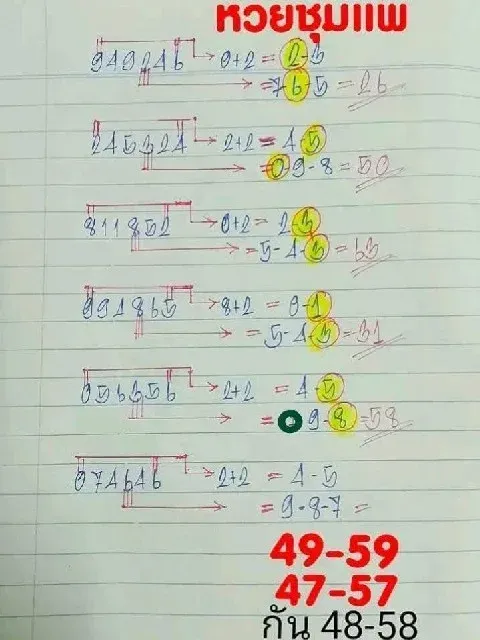 หวยชุมแพ
949246 → 0+2 = 2-3
→ = 7-6-5 = 26
245324 → 2+2 = 4-5
→ = 0 9-8 = 50
811852 → 0+2 = 2-3
→ = 5-4-3 = 63
994865 → 8+2 = 0-1
→ = 5-4-3 = 31
056356 → 2+2 = 4-5
→ = 9-8-58
074646 → 2+2 = 4-5
→ = 9-8-7 =
49-59
47-57
กัน 48-58